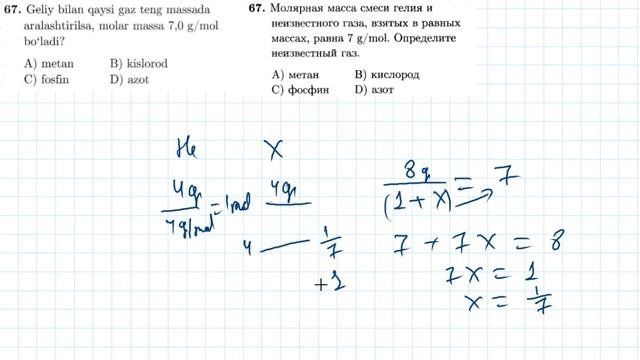 67. Geliy bilan qaysi gaz teng massada
aralashtirilsa, molar massa 7,0 g/mol
bo‘ladi?
A) metan B) kislorod
C) fosfin D) azot
67. Молярная масса смеси гелия и
неизвестного газа, взятых в равных
массах, равна 7 g/mol. Определите
неизвестный газ.
A) метан B) кислород
C) фосфин D) азот
He X
4g 4g
4g/mol = 1mol
4 — 1/7
+1
8g/(1+x) = 7
7 + 7x = 8
7x = 1
x = 1/7